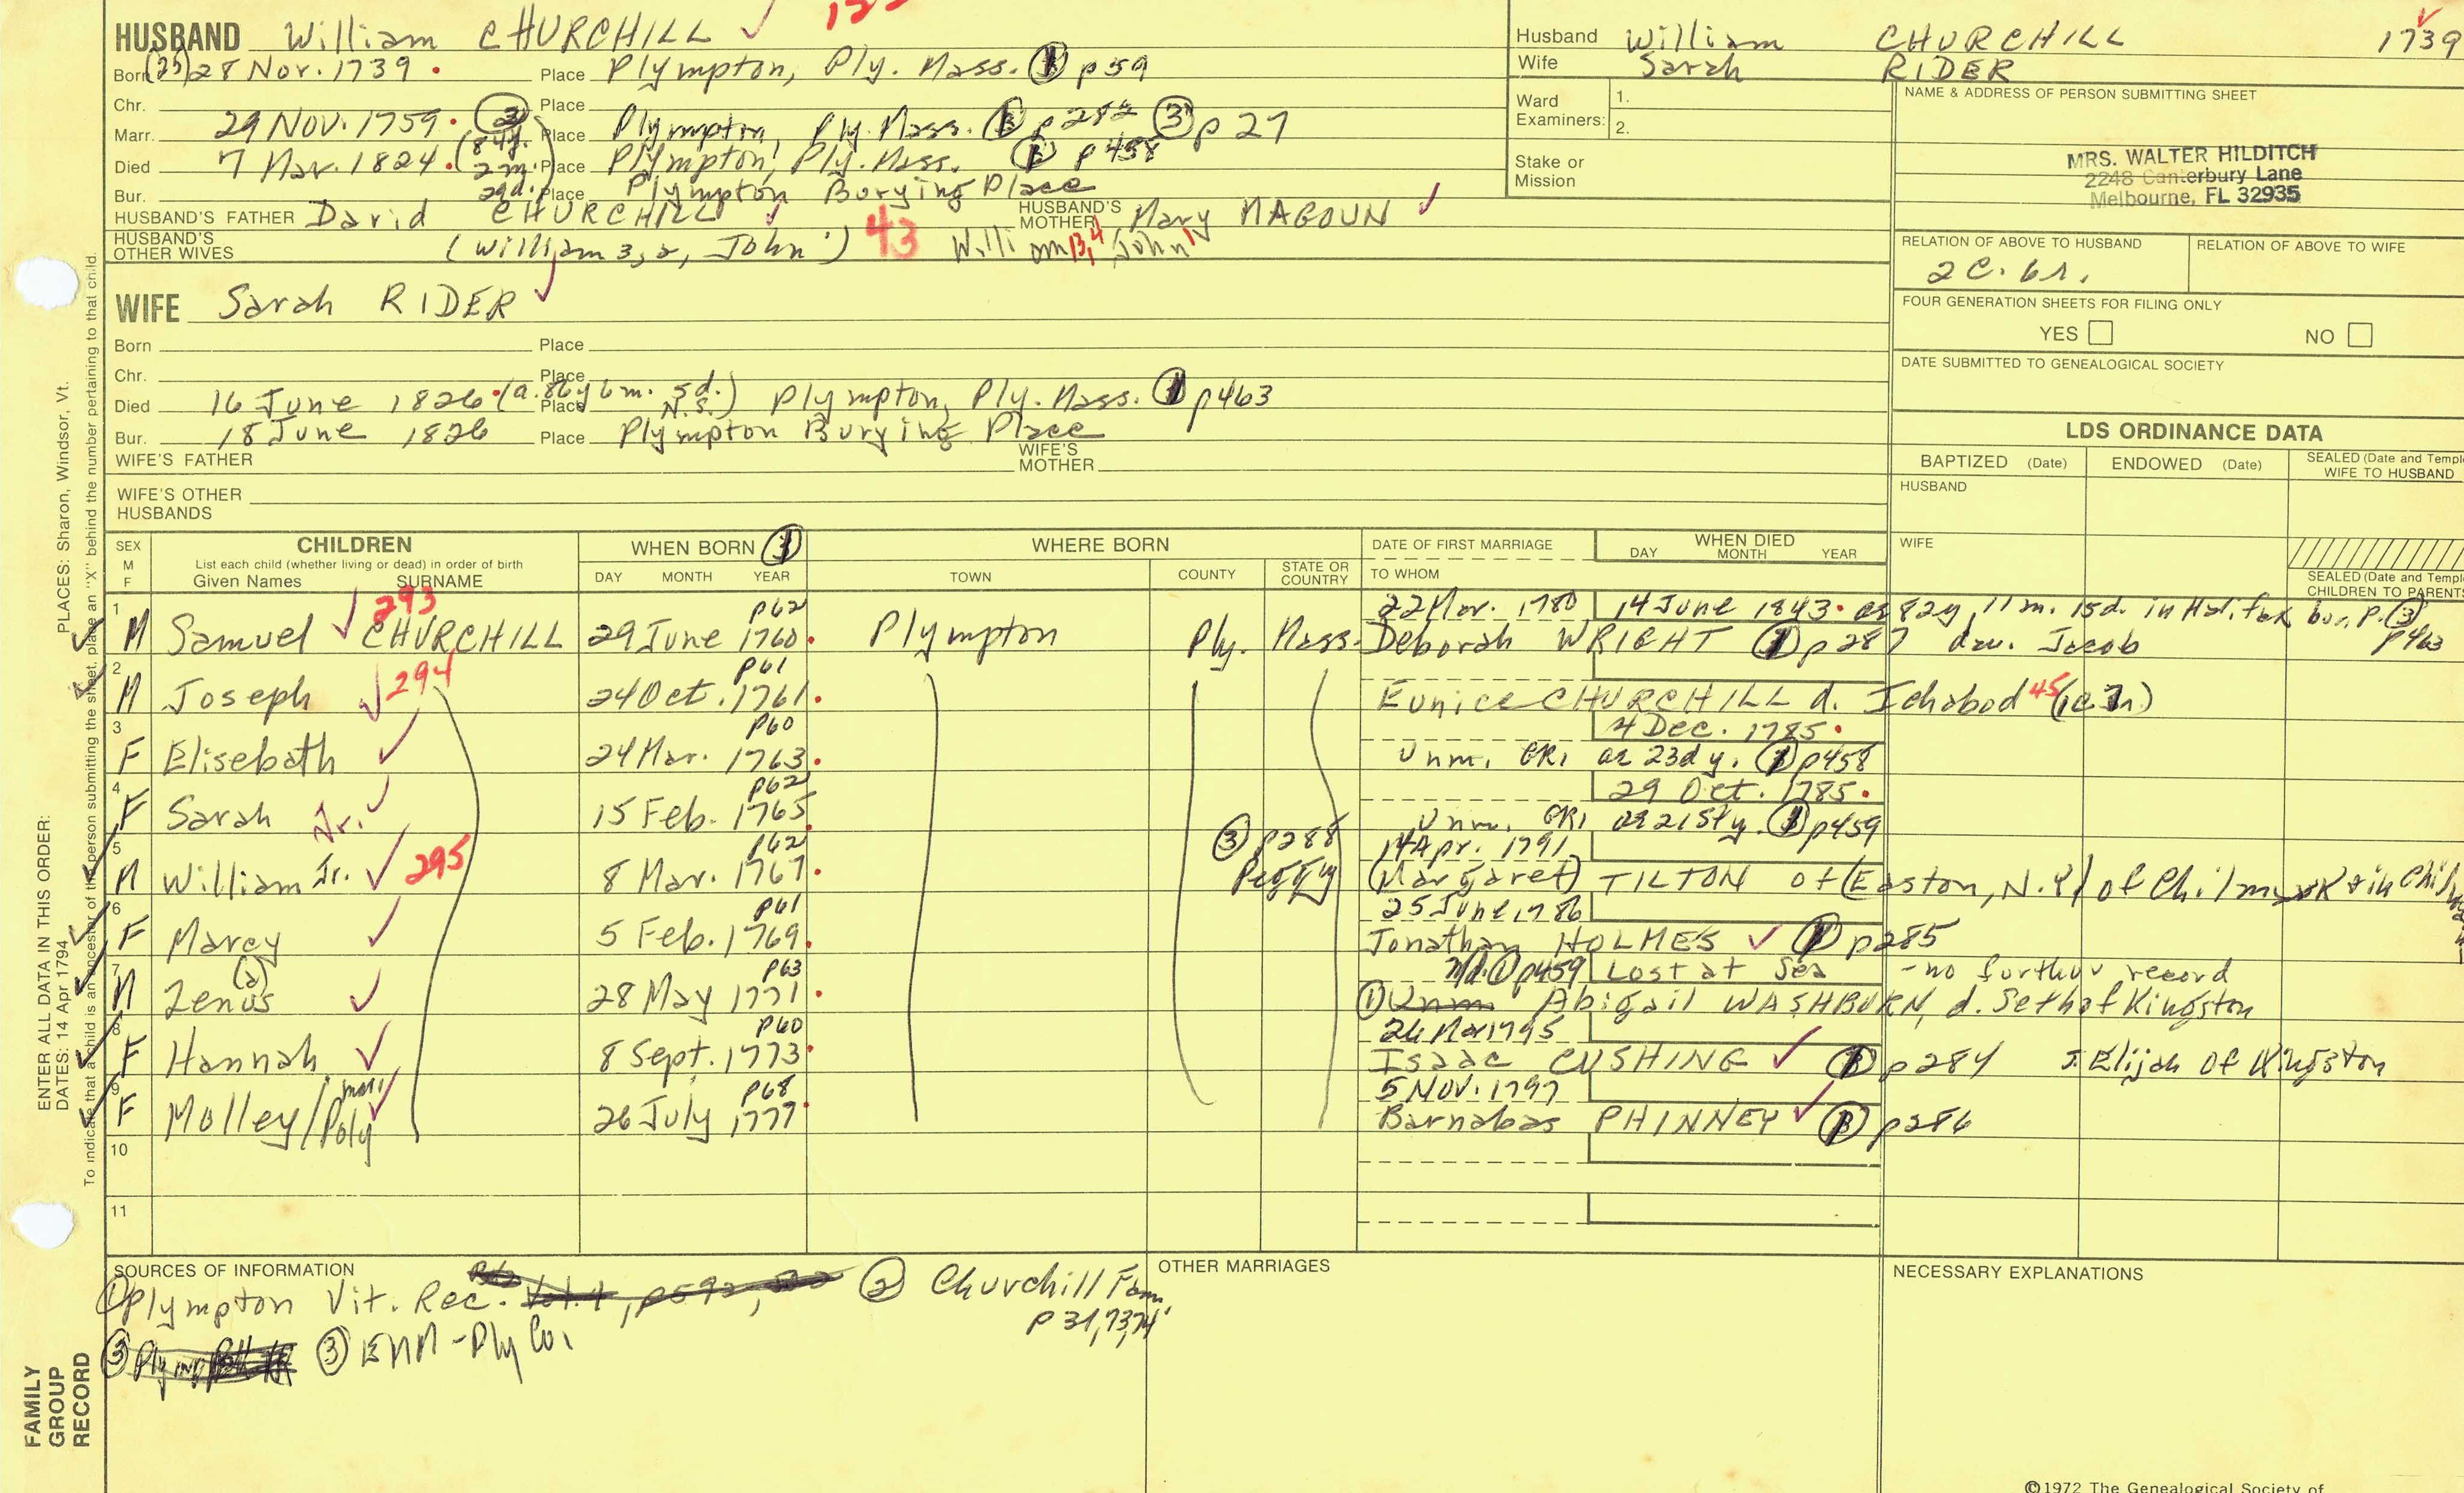 HUSBAND William CHURCHILL
Born (25) 28 Nov. 1739 Place Plympton, Ply. Mass. p 59
Chr. Place
Marr. 29 Nov. 1759 Place Plympton, Ply. Mass. p 282 (3) p 27
Died 7 Mar. 1824 (84y. 2m. 29d.) Place Plympton, Ply. Mass. p 458
Bur. Place Plympton Burying Place
HUSBAND'S FATHER David CHURCHILL HUSBAND'S MOTHER Mary MAGOUN
HUSBAND'S OTHER WIVES (William 3, 2, John 1) 43 William John 1
Husband William CHURCHILL 1739
Wife Sarah RIDER
Ward Examiners: 1.
2.
Stake or Mission
NAME & ADDRESS OF PERSON SUBMITTING SHEET
MRS. WALTER HILDITCH
2248 Canterbury Lane
Melbourne, FL 32935
RELATION OF ABOVE TO HUSBAND RELATION OF ABOVE TO WIFE
2C. 6r.
FOUR GENERATION SHEETS FOR FILING ONLY
YES NO
DATE SUBMITTED TO GENEALOGICAL SOCIETY
WIFE Sarah RIDER
Born Place
Chr. Place
Died 16 June 1826 (a. 86y 6m. 5d. N.S.) Place Plympton, Ply. Mass. p 463
Bur. 18 June 1826 Place Plympton Burying Place
WIFE'S FATHER WIFE'S MOTHER
WIFE'S OTHER HUSBANDS
LDS ORDINANCE DATA
BAPTIZED (Date) ENDOWED (Date) SEALED (Date and Templ
WIFE TO HUSBAND
HUSBAND
WIFE
SEALED (Date and Templ
CHILDREN TO PARENTS
SEX M F CHILDREN WHEN BORN WHERE BORN DATE OF FIRST MARRIAGE WHEN DIED
List each child (whether living or dead) in order of birth
Given Names SURNAME DAY MONTH YEAR TOWN COUNTY STATE OR COUNTRY TO WHOM DAY MONTH YEAR
1 293 p62 22 Mar. 1780 14 June 1843. ae 82y, 11m. 15d. in Halifax bur. P. (3) p463
M Samuel CHURCHILL 29 June 1760 Plympton Ply. Mass. Deborah WRIGHT p 287 dau. Jacob
2 294 p61
M Joseph 24 Oct. 1761 Eunice CHURCHILL d. Ichabod 45
3 p60 4 Dec. 1785
F Elisebath 24 Mar. 1763 Unm. GR1 ae 23d y. p458
4 p62 29 Oct. 1785
F Sarah Jr. 15 Feb. 1765 Unm. GR1 ae 21st y. p459
5 p62 (3) p288 14 Apr. 1791
M William Jr. 295 8 Mar. 1767 Peggy (Margaret) TILTON of (Easton, N.Y.) of Chilmark
6 p61 25 June 1786
F Marcy 5 Feb. 1769 Jonathan HOLMES p 285
7 p63 p459 Lost at Sea - no further record
M Zenus (a) 28 May 1771 Unm Abigail WASHBURN, d. Seth of Kingston
8 p60 26 Mar 1795
F Hannah 8 Sept. 1773 Isaac CUSHING p 284 s. Elijah of Kingston
9 p68 5 Nov. 1797
F Molley/Poly 26 July 1777 Barnabas PHINNEY p 286
10
11
SOURCES OF INFORMATION
(1) Plympton Vit. Rec. (2) Churchill Fam
(3) ENM - Ply Co.
OTHER MARRIAGES
NECESSARY EXPLANATIONS
©1972 The Genealogical Society of
FAMILY GROUP RECORD
ENTER ALL DATA IN THIS ORDER:
DATES: 14 Apr 1794
PLACES: Sharon, Windsor, Vt.
To indicate that a child is an ancestor of the person submitting the sheet, place an "X" behind the number pertaining to that child.